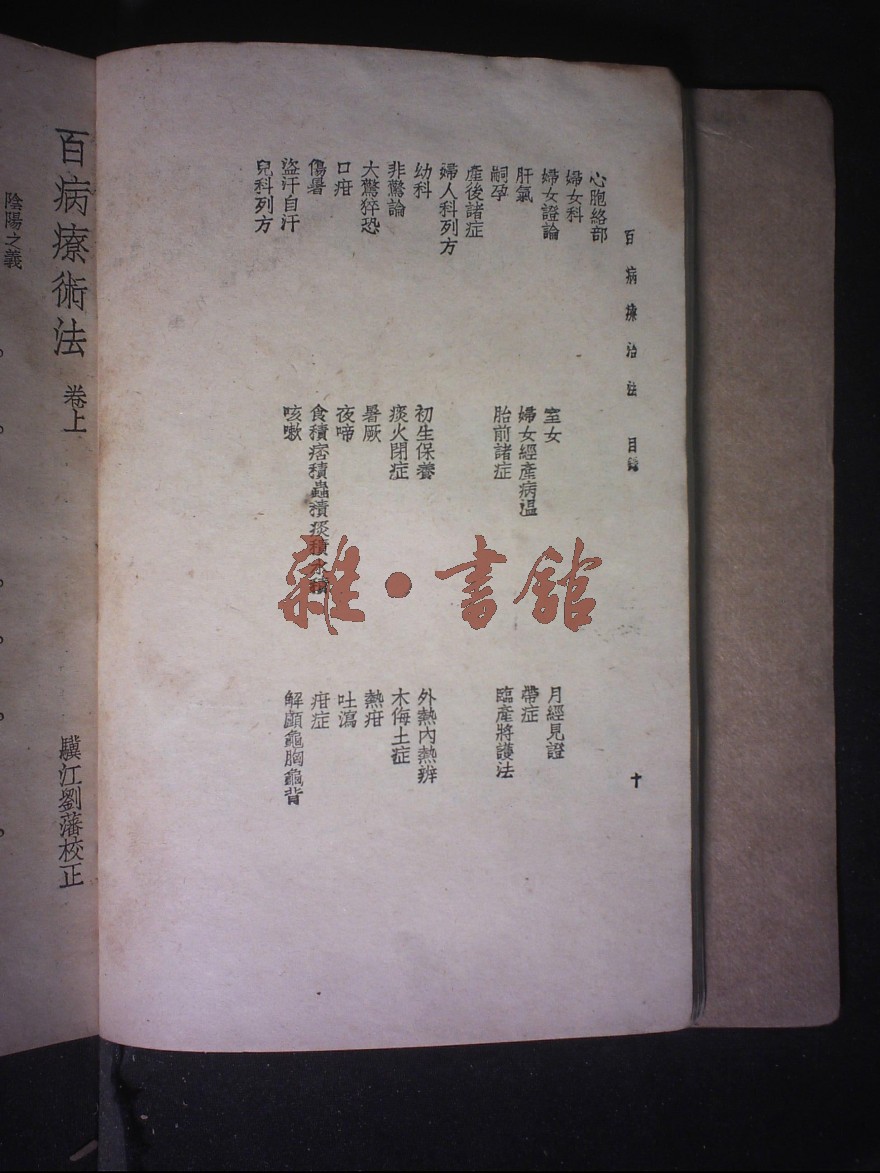 百病療治法 目錄 十
心胞絡部
婦女科
婦女證論 室女 月經見證
肝氣 婦女經產病溫 帶症
嗣孕 胎前諸症 臨產將護法
產後諸症
婦人科列方
幼科 初生保養 外熱內熱辨
非驚論 痰火閉症 木侮土症
大驚猝恐 暑厥 熱疳
口疳 夜啼 吐瀉
傷暑 食積痞積蟲積痰積水積 疳症
盜汗自汗 咳嗽 解顱龜胸龜背
兒科列方
雜·書館
百病療術法 卷上 驥江劉藩校正
陰陽之義